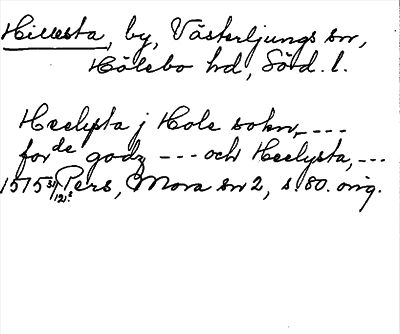 Hillesta, by, Västerljungs sn,
Hölebo hd, Söd. l.
Heelysta j Hole sokn, ---
for de godz --- och Heelysta, ---
1575 31/12 Pers, Mora sn 2, s. 80. orig.